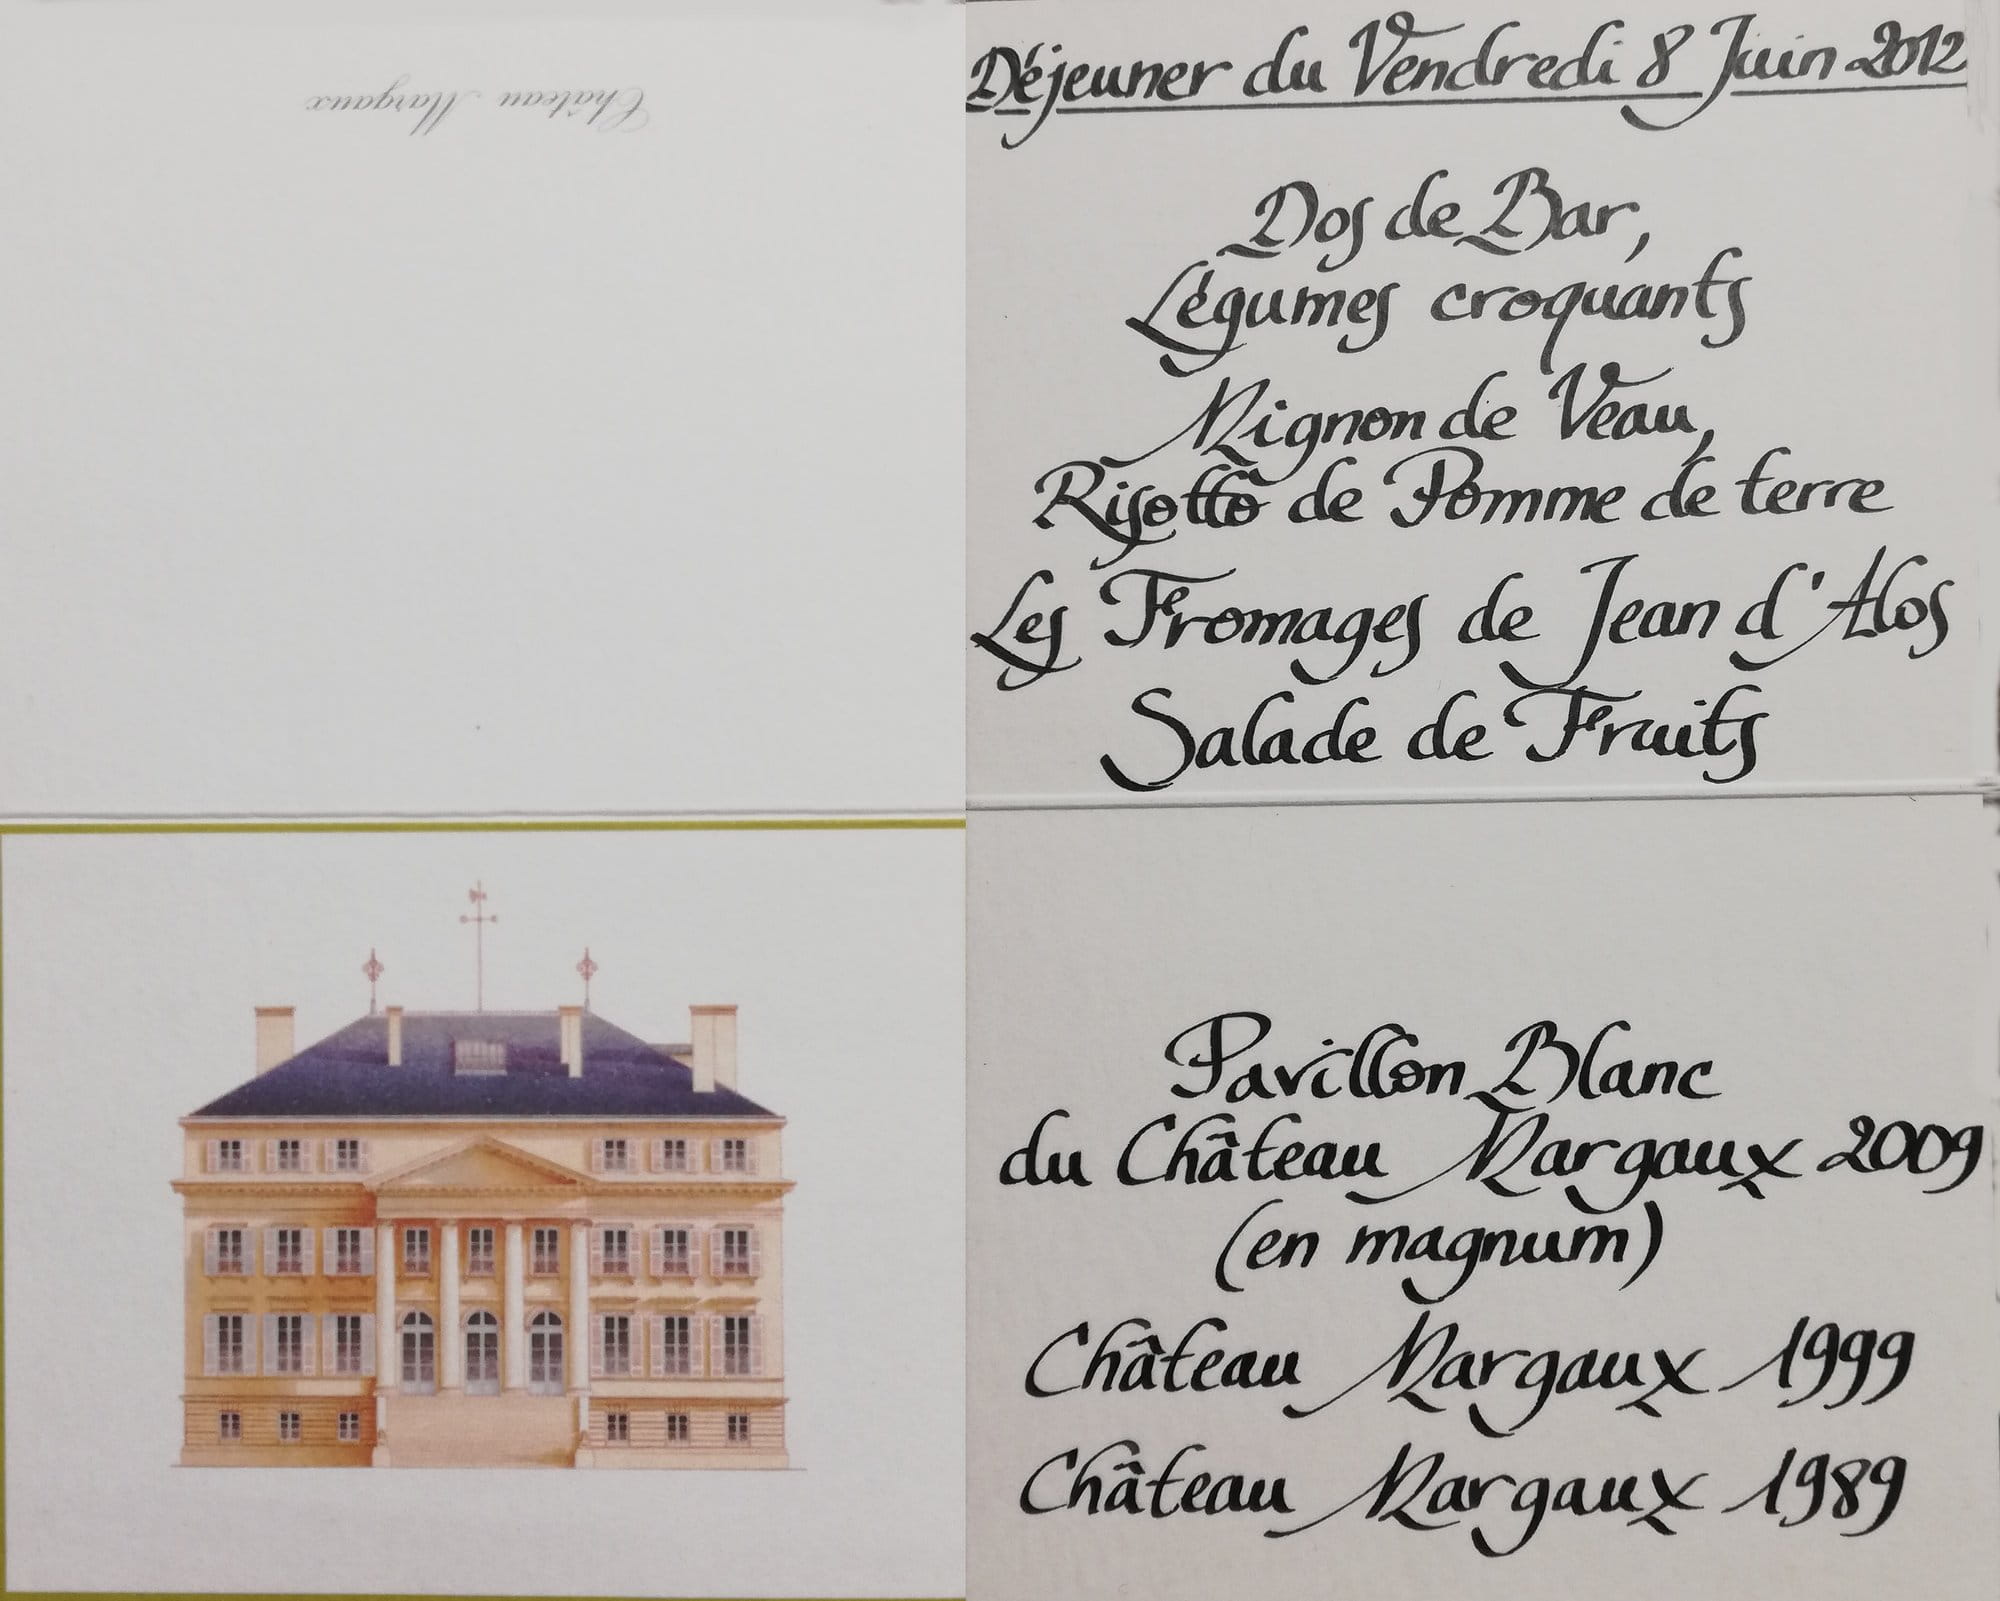 Château Margaux
Déjeuner du Vendredi 8 Juin 2012
Dos de Bar,
Légumes croquants
Mignon de Veau,
Risotto de Pomme de terre
Les Fromages de Jean d'Alos
Salade de Fruits
Pavillon Blanc
du Château Margaux 2009
(en magnum)
Château Margaux 1999
Château Margaux 1989